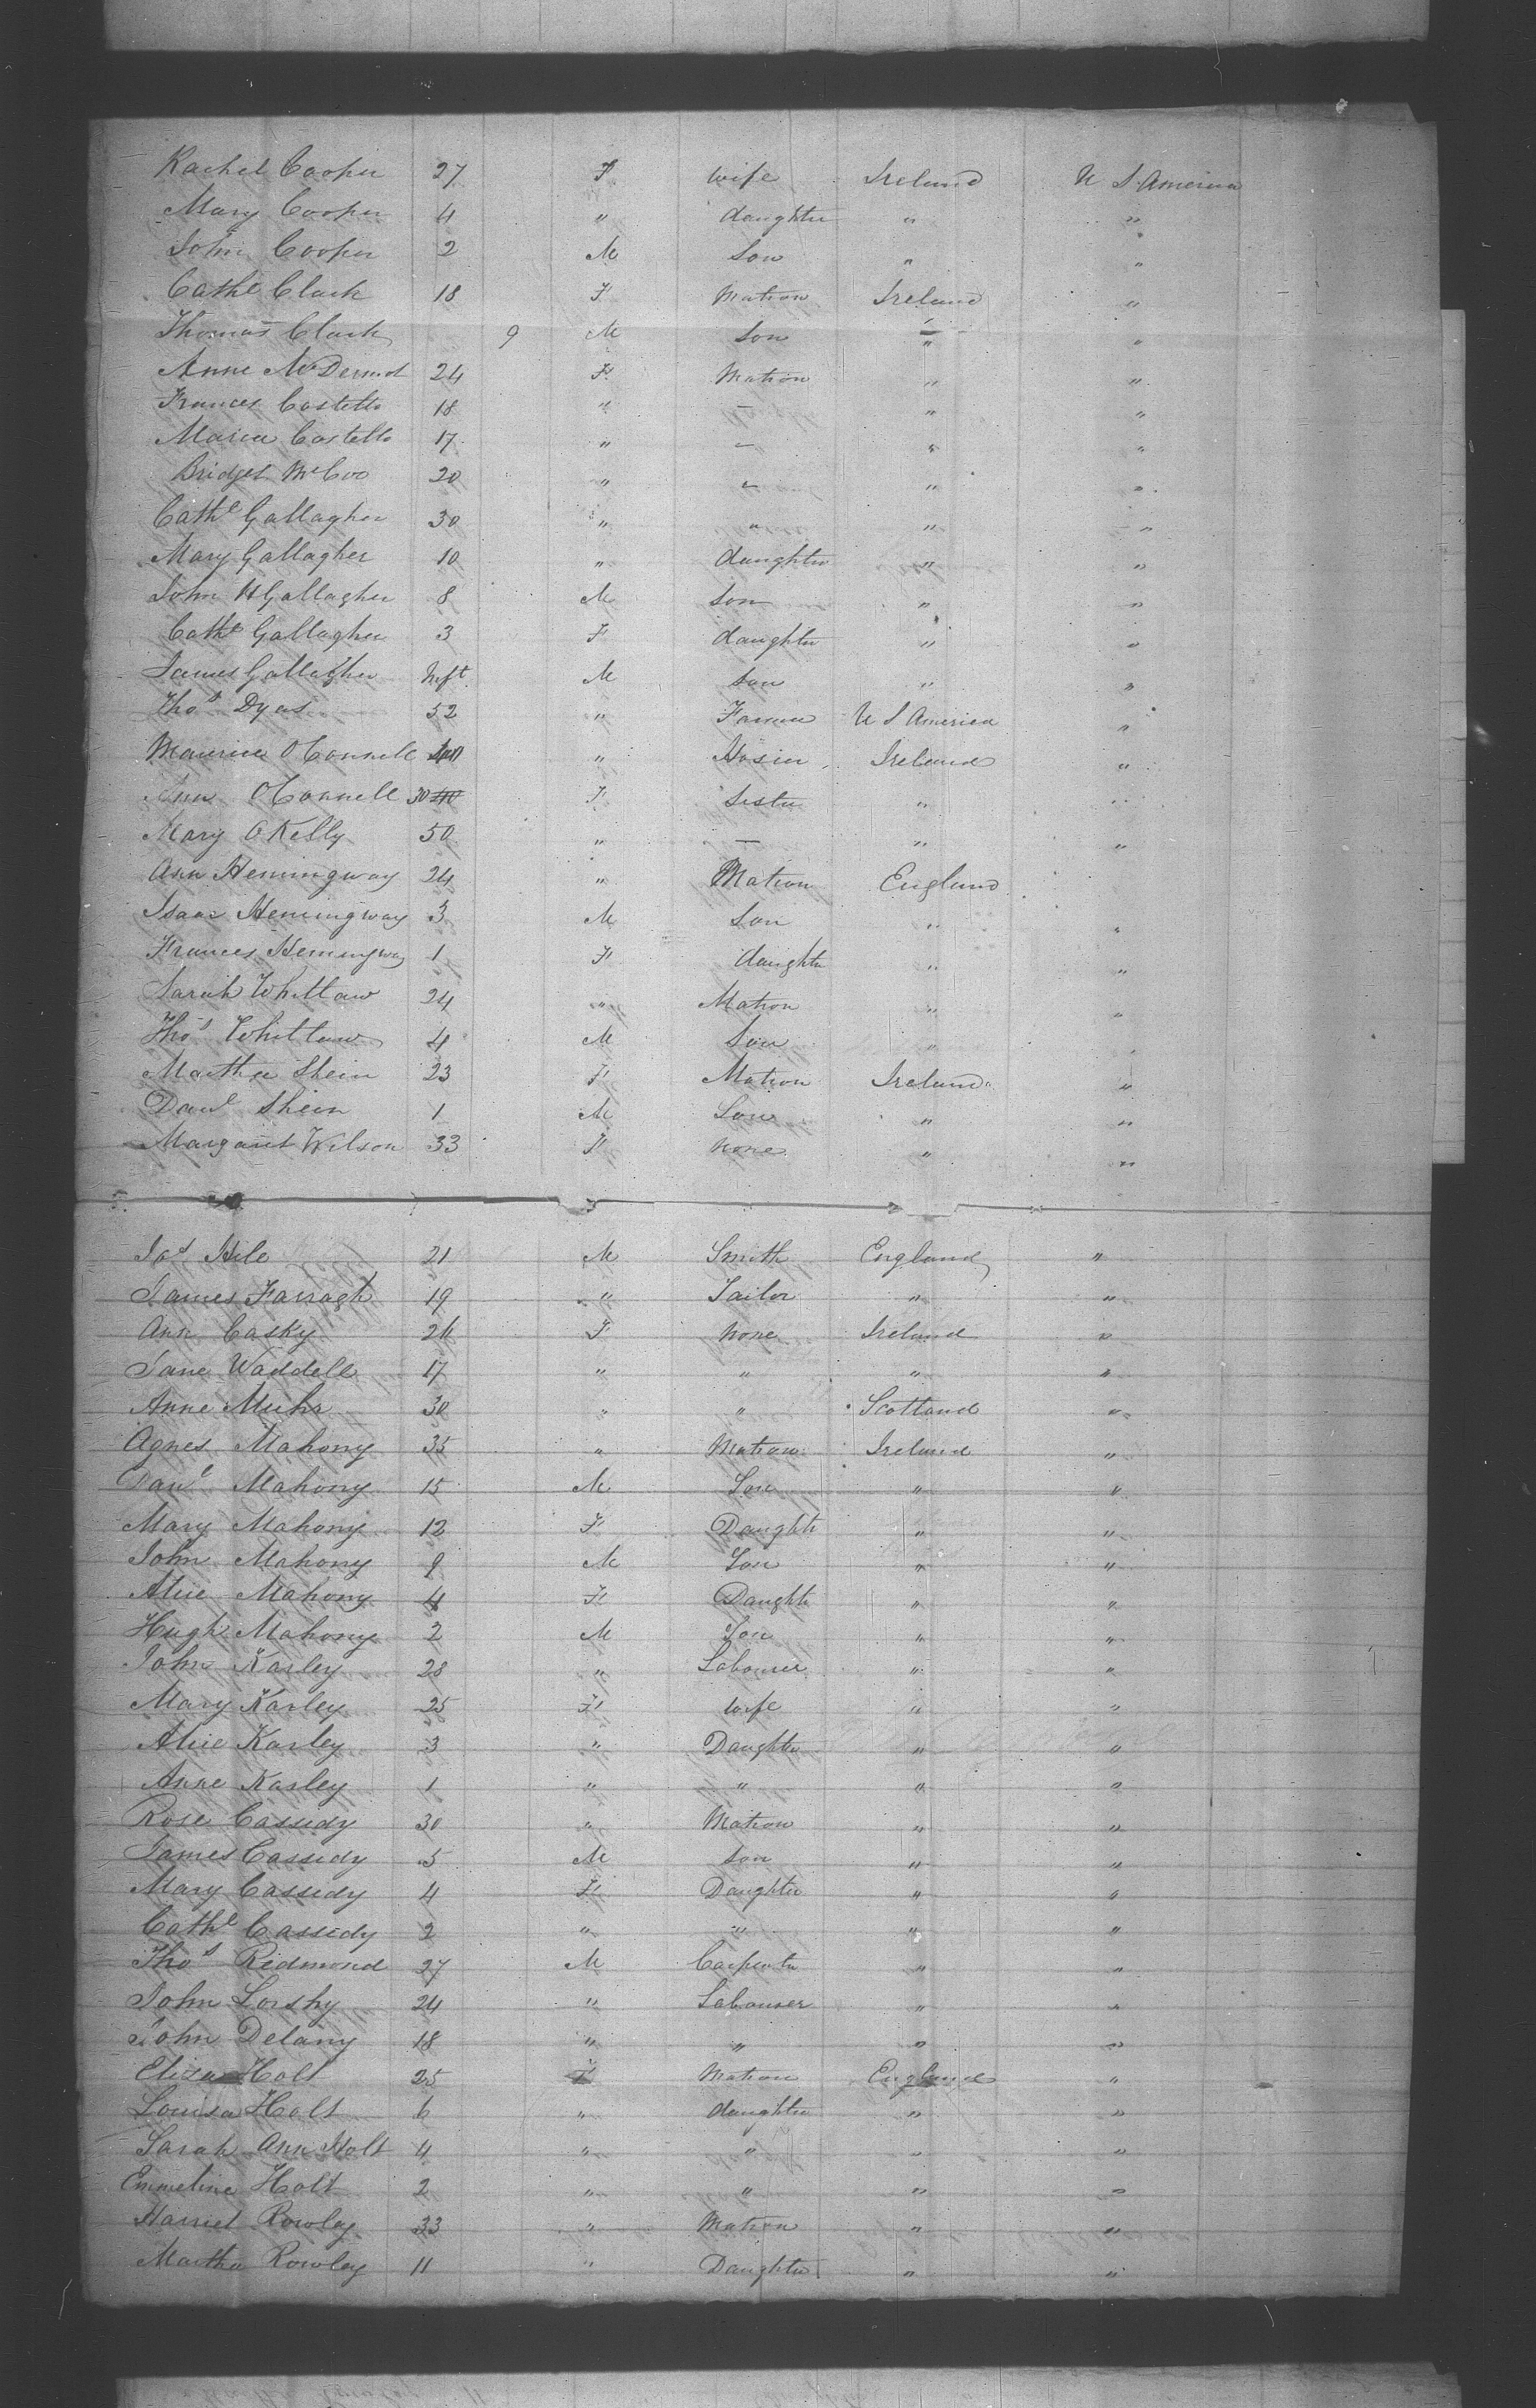 Rachel Cooper 27 F wife Ireland U S America
Mary Cooper 4 " daughter " "
John Cooper 2 M Son " "
Cathe Clark 18 F Matron Ireland "
Thomas Clark 9 M Son " "
Anne McDermot 24 F Matron " "
Frances Costello 18 " – " "
Maria Costello 17 " – " "
Bridget McCoo 20 " – " "
Cathe Gallagher 30 " " " "
Mary Gallagher 10 " daughter " "
John H Gallagher 8 M Son " "
Cathe Gallagher 3 F daughter " "
James Gallagher Inft M Son " "
Thos Dyas 52 " Farmer U S America "
Maurice OConnell " Hosier Ireland "
Ann OConnell 30 F Sister " "
Mary OKelly 50 " – " "
Ann Hemingway 24 " Matron England
Isaac Hemingway 3 M Son " "
Frances Hemingway 1 F daughter " "
Sarah Whitlaw 24 " Matron " "
Thos Whitlaw 4 M Son " "
Martha Shein 23 F Matron Ireland "
Danl Shein 1 M Son " "
Margaret Wilson 33 F none " "
Jos Hile 21 M Smith England "
James Farragh 19 " Tailor " "
Ann Casky 26 F none Ireland "
Jane Waddell 17 " " " "
Anne 30 " " Scotland "
Agnes Mahony 35 " Matron Ireland "
Danl Mahony 15 M Son " "
Mary Mahony 12 F Daughtr " "
John Mahony 9 M Son " "
Alice Mahony 4 F Daughtr " "
Hugh Mahony 2 M Son " "
John Karley 28 " Labourer " "
Mary Karley 25 F wife " "
Alice Karley 3 " Daughter " "
Anne Karley 1 " " " "
Rose Cassidy 30 " Matron " "
James Cassidy 5 M Son " "
Mary Cassidy 4 F Daughter " "
Cathe Cassidy 2 " " " "
Thos Redmond 27 M Carpenter " "
John 24 " Labourer " "
John Delany 18 " " " "
Eliza Holt 25 F Matron England "
Louisa Holt 6 " daughter " "
Sarah Ann Holt 4 " " " "
Emmeline Holt 2 " " " "
Harriet Rowley 33 " Matron " "
Martha Rowley 11 " Daughter " "